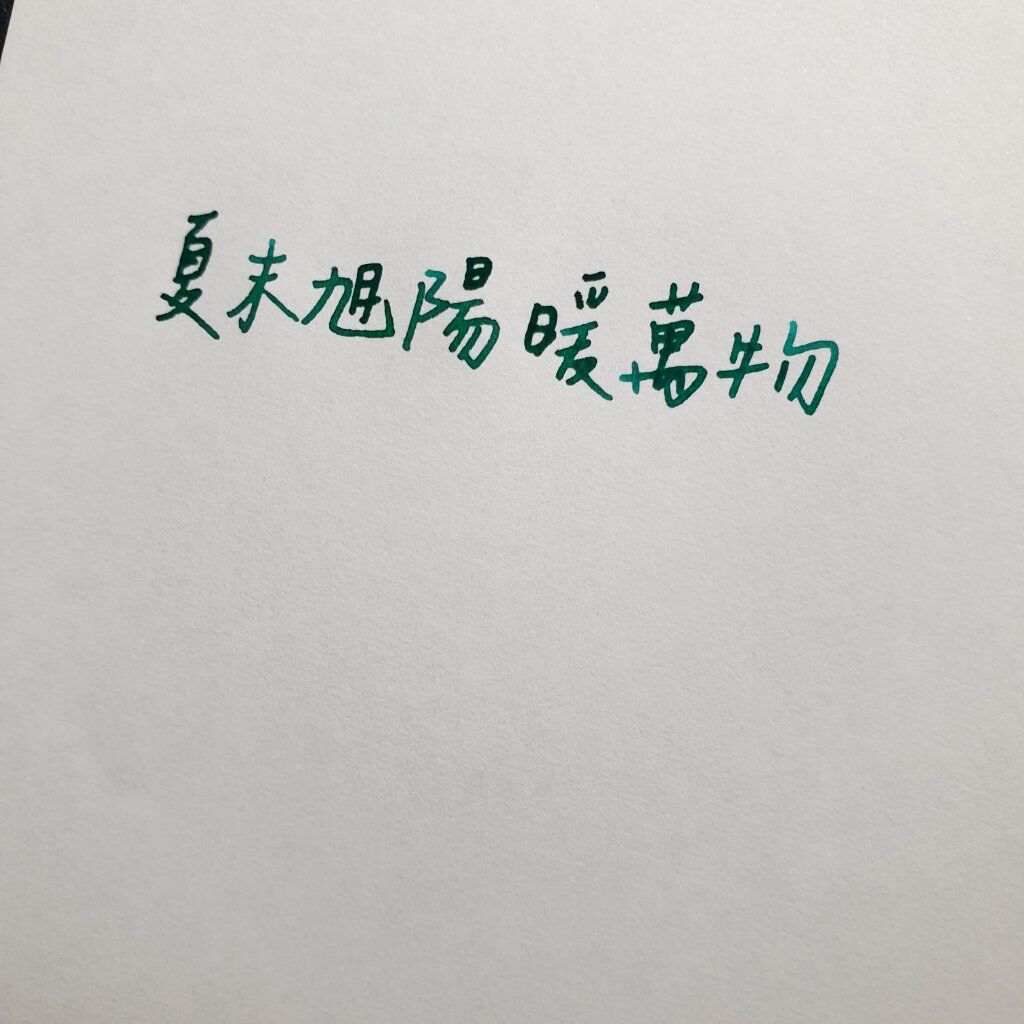 夏末旭陽暖萬物